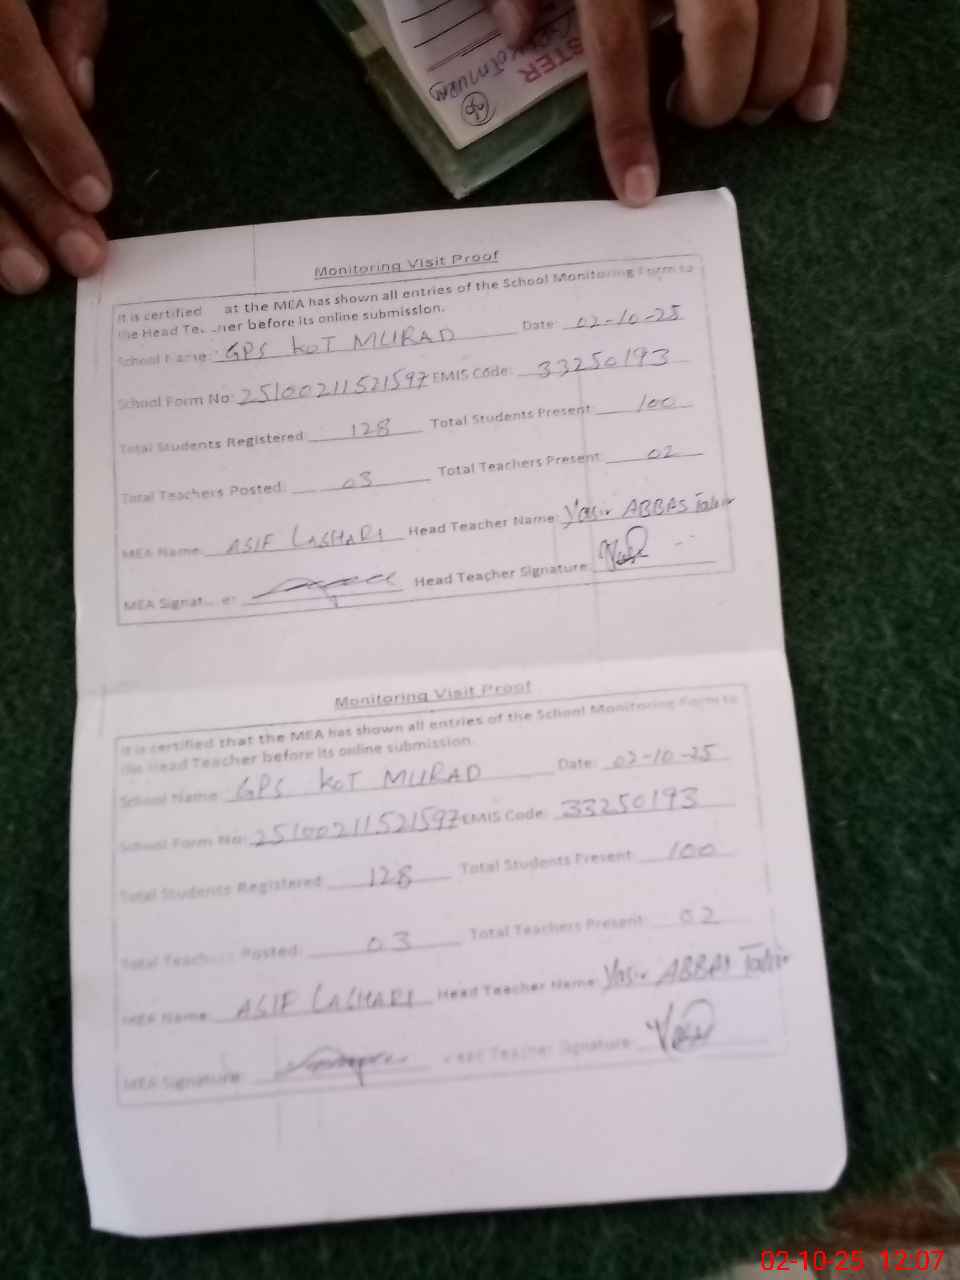 STER
KOTMURAD
Monitoring Visit Proof
It is certified at the MEA has shown all entries of the School Monitoring Form to
the Head Te.. ..her before its online submission.
School Name: GPS KOT MURAD Date: 02-10-25
School Form No: 25100211521597 EMIS Code: 33250193
Total Students Registered: 128 Total Students Present: 100
Total Teachers Posted: 03 Total Teachers Present: 02
MEA Name: ASIF LASHARI Head Teacher Name: Yasir ABBAS Tahir
MEA Signat... e: Head Teacher Signature:
Monitoring Visit Proof
It is certified that the MEA has shown all entries of the School Monitoring Form to
the Head Teacher before its online submission.
School Name: GPS KOT MURAD Date: 02-10-25
School Form No: 25100211521597 EMIS Code: 33250193
Total Students Registered: 128 Total Students Present: 100
Total Teach... Posted: 03 Total Teachers Present: 02
MEA Name: ASIF LASHARI Head Teacher Name: Yasir ABBAS Tahir
MEA Signature: Head Teacher Signature:
02-10-25 12:07